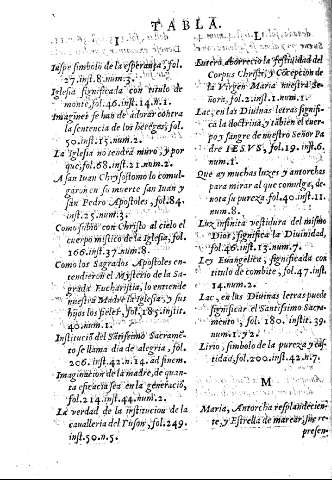 TABLA.
I
Iaspe simbolo de la esperança, fol.
27.inst.8.num.3.
Iglesia significada con titulo de
monte, fol.46.inst.14.n.1.
Imagines se han de adorar contra
la sentencia de los hereges, fol.
50.inst.15.num.2.
La Iglesia no tendrà muro, y por
que, fol.68.inst.21.num.2.
A san Iuan Chrysostomo lo comul
garon en su muerte san Iuan y
san Pedro Apostoles, fol.84.
inst.25.num.3.
Como subio con Christo al cielo el
cuerpo mistico de la Iglesia, fol.
166.inst.37.num.8.
Como los Sagrados Apostoles en-
tendieron el Mysterio de la Sa-
grada Eucharistia, lo entiende
nuestra Madre la Iglesia, y sus
hijos los fieles, fol.185.instit.
40.num.1.
Instituciõ del Santissimo Sacramẽ-
to se llama dia de alegria, fol.
206.inst.42.n.14.ad finem.
Imaginacion de la madre, de quan-
ta eficacia sea en la generaciõ,
fol.214.inst.44.num.2.
La verdad de la institucion de la
caualleria del Tuson, fol.249.
inst.50.n.5.
L
Lutero aborrecio la festiuidad del
Corpus Christi, y Cõcepcion de
la Virgen Maria nuestra Se-
ñora, fol.2.inst.1.num.1.
Lac, en las Diuinas letras signifi-
ca la doctrina, y tãbien el cuer-
po y sangre de nuestro Señor Pa
dre IESVS, fol.19.inst.6.
num.1.
Que ay muchas luzes y antorchas
para mirar al que comulga, de-
nota su pureza fol.40.inst.11.
num.8.
Luz infinita vestidura del mismo
Dios, significa la Diuinidad,
fol.46.inst.13.num.7.
Ley Euangelica, significada con
titulo de combite, fol.47.inst.
14.num.2.
Lac, en las Diuinas letras puede
significar el Santissimo Sacra-
mento, fol. 180. instit. 39.
num.1.y 2.
Lirio, simbolo de la pureza y cas-
tidad, fol.200.inst.42.n.7.
M
Maria, Antorcha resplandecien-
te, y Estrella de marear, fue re-
presen-